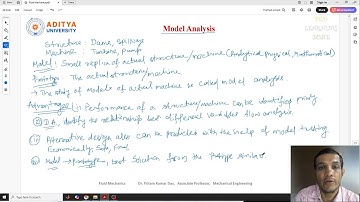 ADITYA
UNIVERSITY
Model Analysis
Structure: Dams, Spillways
Machine: Turbine, Pump
Model: Small replica of actual structure/machine (Analytical, Physical, Mathematical)
Prototype: The actual structure/machine
→ The study of models of actual machine is called model analysis
Advantages: Performance of a structure/machine can be identified
D.A. Identify the relationship bet different variables flow analysis
Alternative design also can be predicted with the help of model testing
Economically, Safe,
Model → prototype, best solution for the
Fluid Mechanics
Associate Professor, Mechanical Engineering